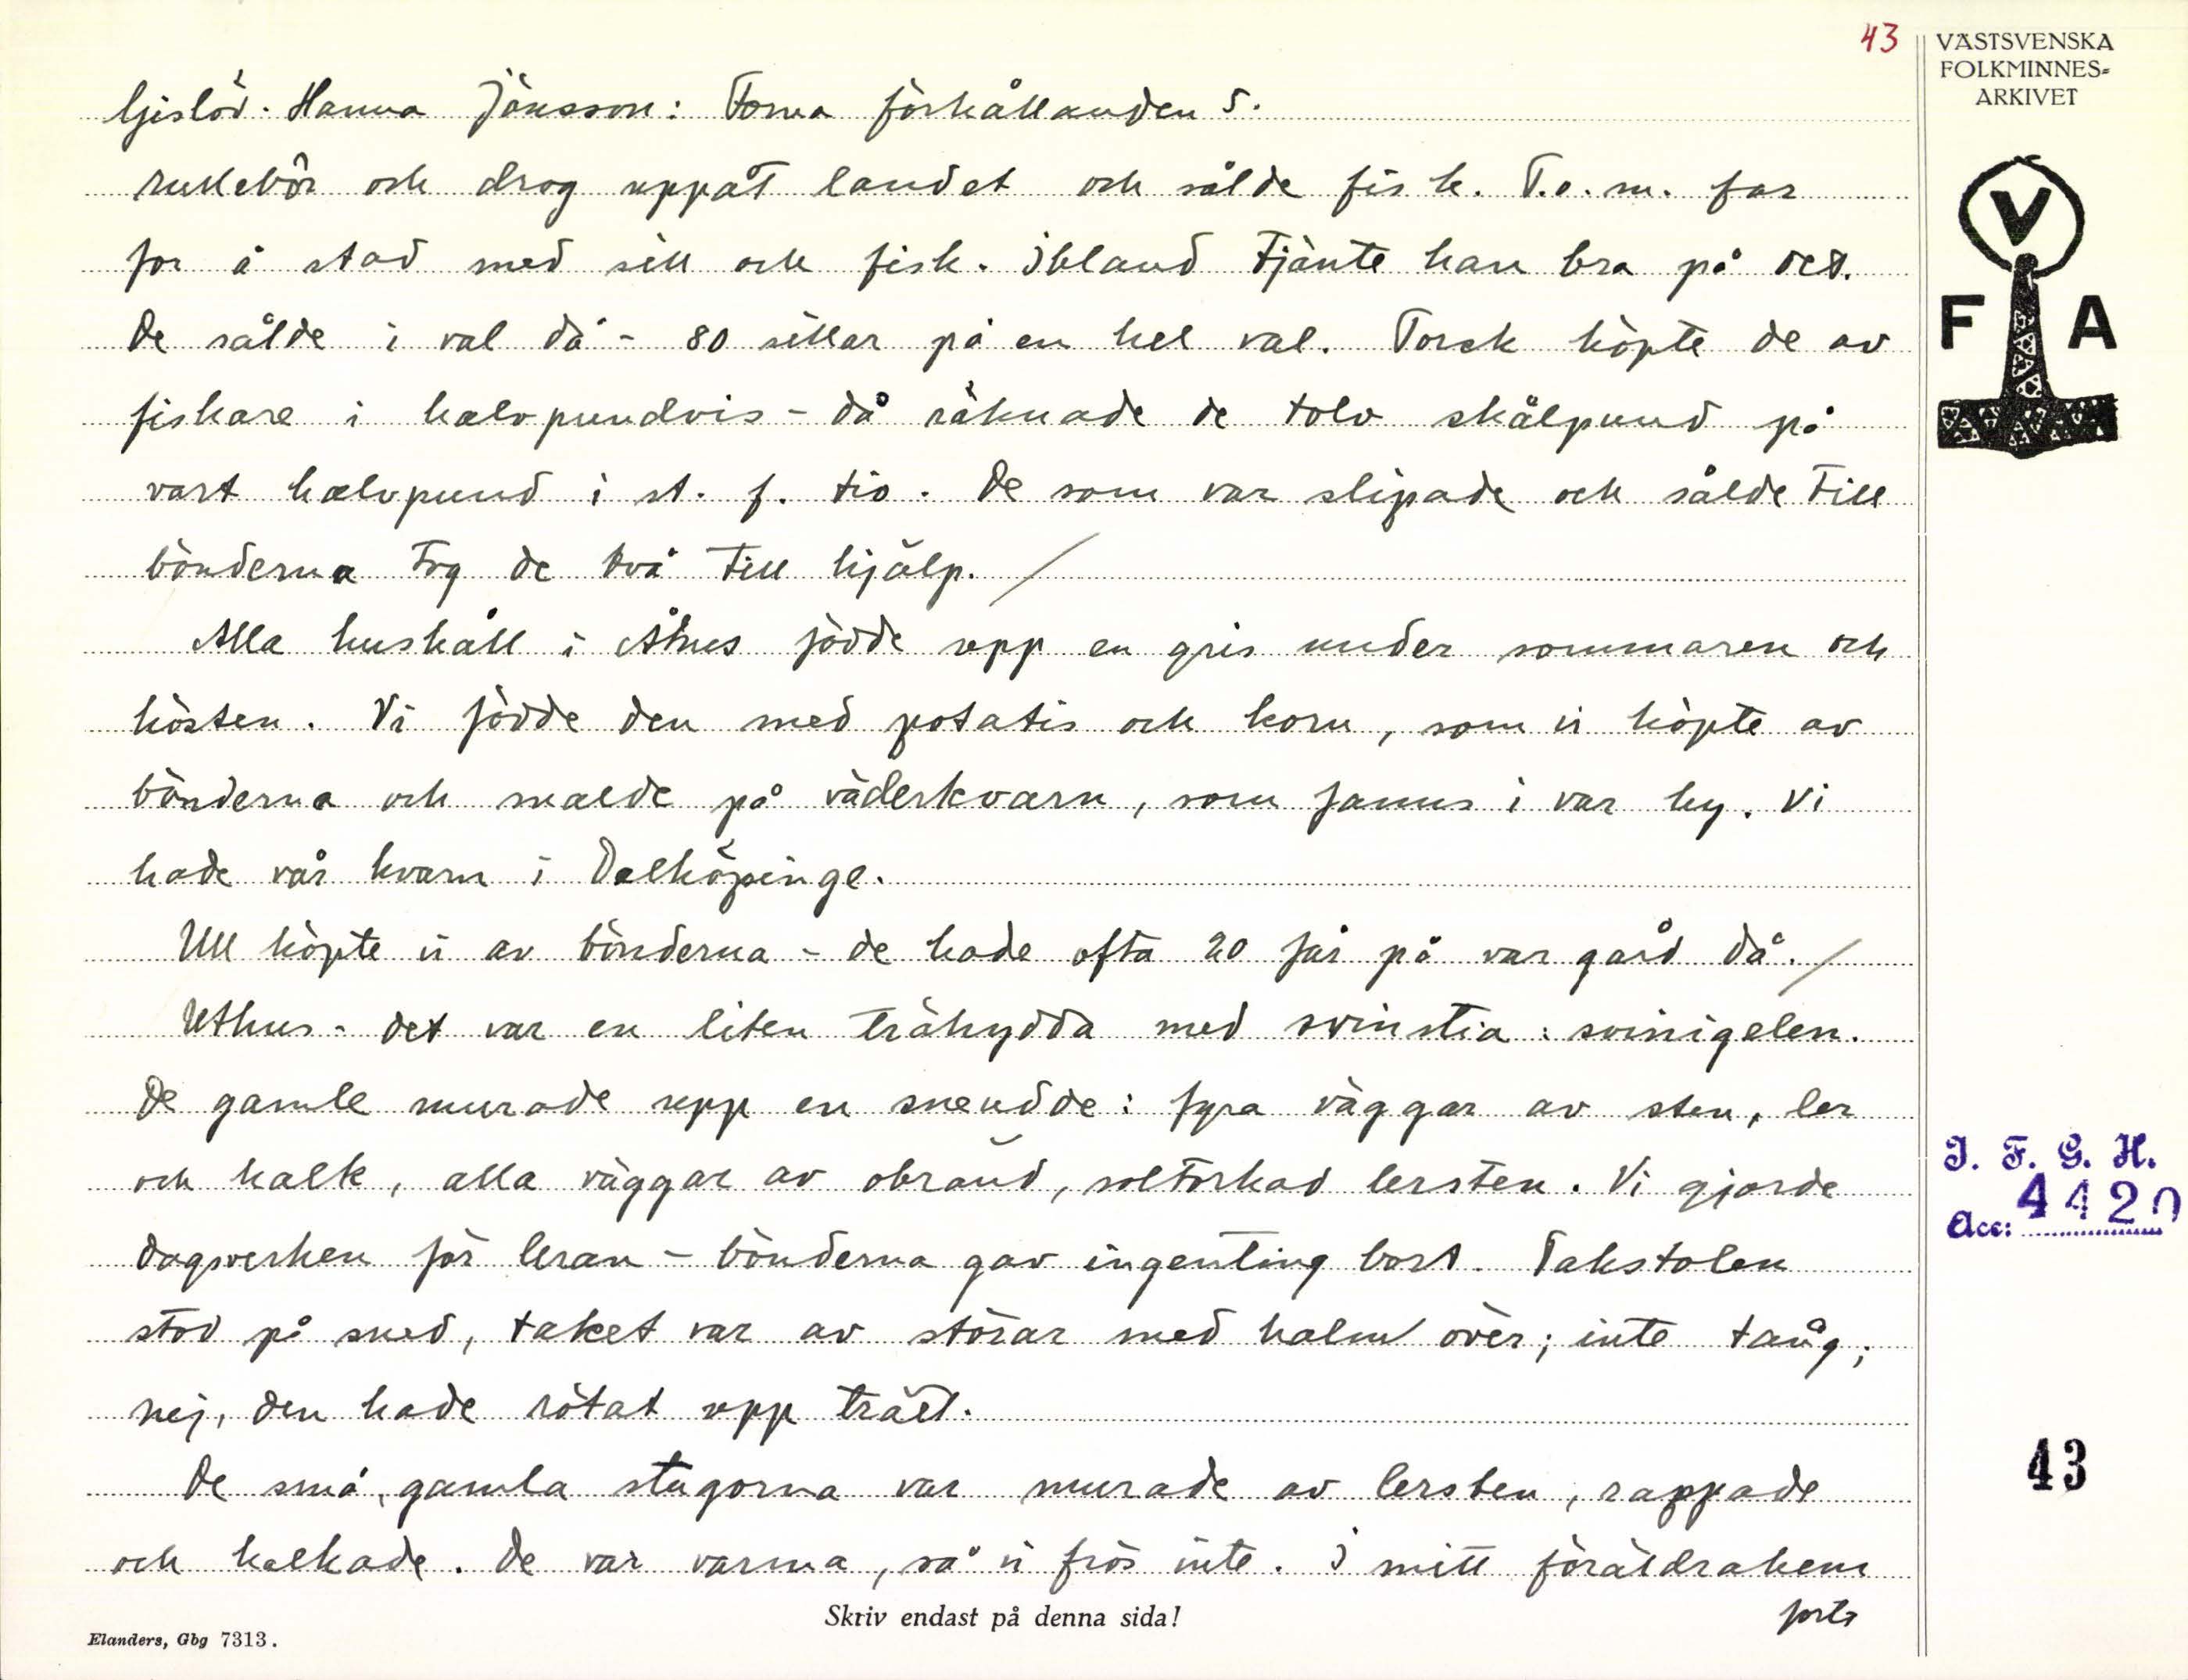 43
VÄSTSVENSKA
FOLKMINNES-
ARKIVET
Gislöv. Hanna Jönsson: Forna förhållanden 5.
rullebör och drog uppåt landet och sålde fisk. T.o.m. far
for å stad med sill och fisk. Ibland tjänte han bra på det.
De sålde i val då - 80 sillar på en hel val. Torsk köpte de av
fiskare i halvpundvis - då räknade de tolv skålpund på
vart halvpund i st. f. tio. De som var slipade och sålde till
bönderna tog de två till hjälp. /
Alla hushåll i Åhus födde upp en gris under sommaren och
hösten. Vi födde den med potatis och korn, som vi köpte av
bönderna och malde på väderkvarn, som fanns i var by. Vi
hade vår kvarn i Dalköpinge.
Ull köpte vi av bönderna - de hade ofta 20 får på var gård då. /
Uthus - det var en liten trähydda med svinstia: svinigelen.
De gamle murade upp en snedde: fyra väggar av sten, ler
och kalk, alla väggar av obränd, soltorkad lersten. Vi gjorde
dagsverken för leran - bönderna gav ingenting bort. Takstolen
stod på sned, taket var av störar med halm över; inte tång;
nej, den hade rötat upp träet.
De små, gamla stugorna var murade av lersten, rappade
och kalkade. De var varma, så vi frös inte. I mitt föräldrahem
forts
V
F A
I. F. G. H.
Acc: 4420
43
Skriv endast på denna sida!
Elanders, Gbg 7313.